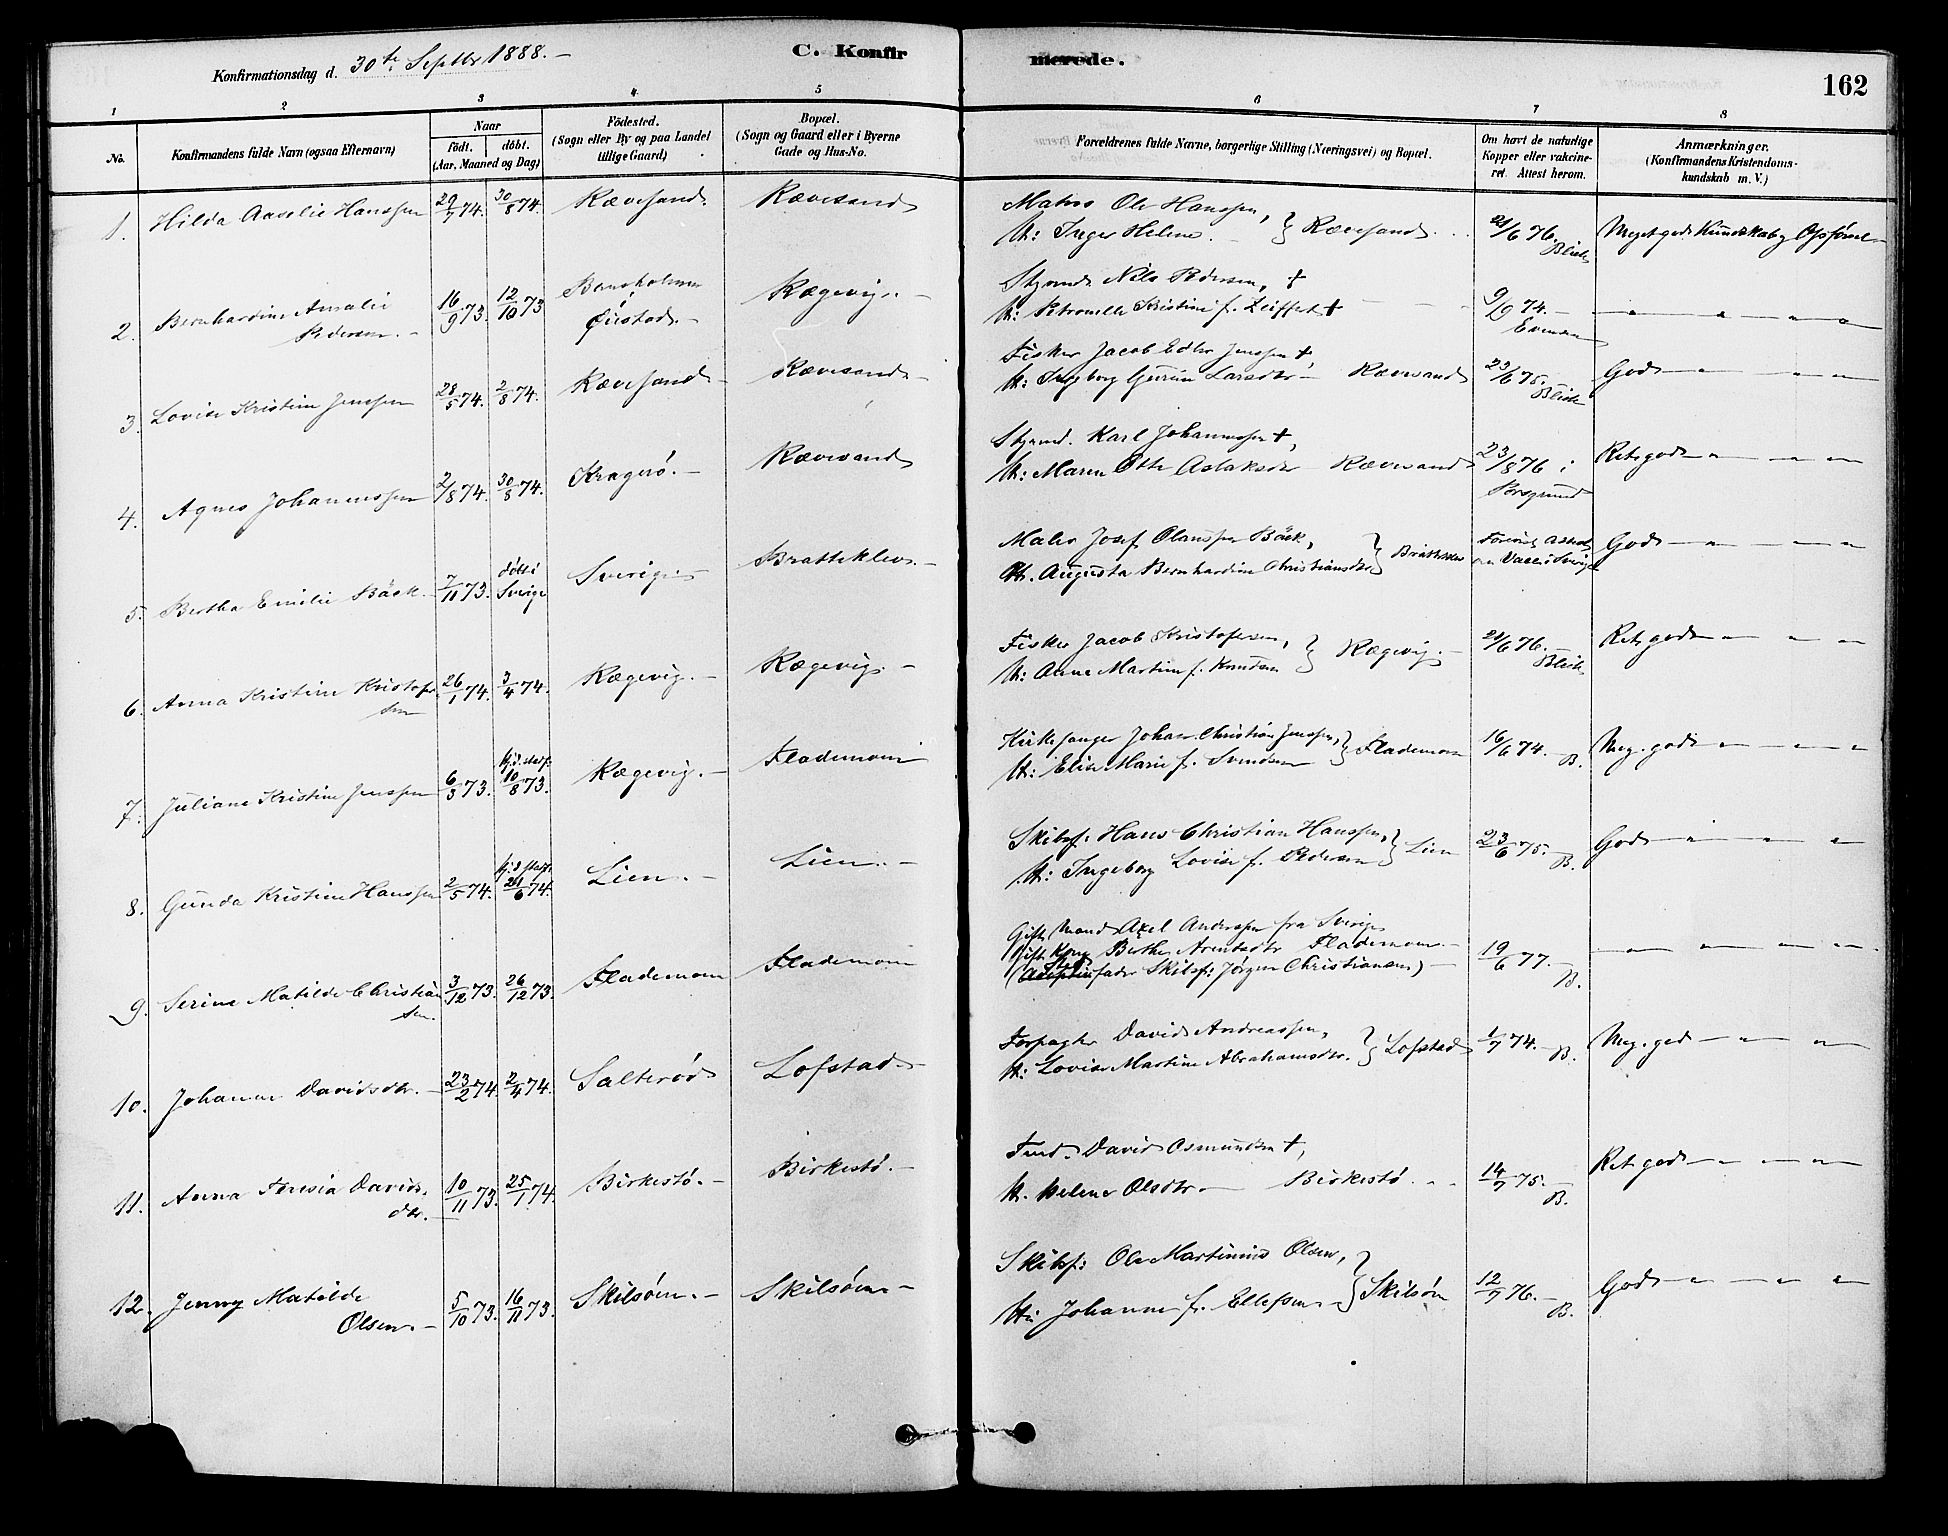 Konfirmationsdag d. 30te Septbr 1888. –
C. Konfirmerede.
162
1 2 3 4 5 6 7 8
No. Konfirmandens fulde Navn (ogsaa Efternavn) Naar födt. döbt. (Aar, Maaned og Dag) Födested. (Sogn eller By og paa Landet tillige Gaard) Bopæl. (Sogn og Gaard eller i Byerne Gade og Hus-No. Forældrenes fulde Navne, borgerlige Stilling (Næringsvei) og Bopæl. Om havt de naturlige Kopper eller vakcineret. Attest herom. Anmærkninger. (Konfirmandens Kristendomskundskab m. V.)
1. Hilda Aaselie Hanssen 29/7 74. 30/8 74. Rævesand. Rævesand Matros Ole Hanssen,
H: Inger Helene. } Rævesand. 21/6 76. Blich Meget god Kundskab og Opførsel
2. Bernhardine Amalie Pedersen. – 16/9 73. 12/10 73 Øiestad. – Rægevig. – Styrmd. Nils Pedersen, +
H: Petronelle Kristine f. Zeiffert + 9/9 74. –
3. Lovise Kristine Jenssen 28/5 74. 2/8 74. Rævesand – Rævesand – Fisker Jacob Edler Jenssen +,
H: Ingeborg Gurine Larsdtr – Rævesand 23/6 75. Blich God
4. Agnes Johannessen 2/8 74. 30/8 74. Kragerø. – Rævesand Styrmd. Karl Johannessen +,
H: Maren Otte Aslaksdtr – Rævesand 23/8 76 i Porsgrund Ret god
5. Bertha Emilie Bäck. 7/11 73. döbt i Sverige Sverige Bratteklev. – Maler Josef Olaussen Bäck,
H. Augusta Bernhardine Christiansdtr } Bratteklev i Sverige God
6. Anna Kristine Kristofersen 26/1 74. 3/4 74. Rægevig. – Rægevig – Fisker Jacob Kristofersen,
H: Anne Martine f. Knudsen } Rægevig. – 21/6 76. – Blich Ret god
7. Juliane Kristine Jenssen 6/3 73. hj.d. stadf. 10/8 73. Rægevig. – Flademoen Kirkesanger Johan Christian Jenssen,
H: Elise Marie f. Svendsen } Flademoen 16/6 74. – B. Meg. god
8. Gunda Kristine Hanssen 2/5 74. hj.d. stadf. 21/6 74. Lien. – Lien. – Skibsf. Hans Christian Hanssen,
H: Ingeborg Lovise f. Pedersen } Lien 23/6 75. – B. God
9. Serine Matilde Christiansen. 3/12 73. 26/12 73. Flademoen Flademoen Gift Mand Axel Anderssen fra Sverige
Gift Kone Berthe Arentsdtr Flademoen. –
(Stedfader Skibsf: Jørgen Christiansen) – 19/6 77. – B.
10. Johanne Davidsdtr. – 23/2 74. 2/4 74. Salterød Lofstad – Forpagter David Andreassen,
H: Lovise Martine Abrahamsdtr. } Lofstad 1/7 74. – B. Meg. god
11. Anna Teresia Davidsdtr. – 10/11 73. 25/1 74. Birkestø. – Birkestø. – David Osmundsen +,
H. Helene Olsdtr – Birkestø. 14/7 75. – B. Ret god
12. Jenny Matilde Olsen. – 5/10 73. 16/11 73. Skilsøen. – Skilsøen – Skibsf: Ole Martinius Olsen,
H: Johanne f. Ellefsen – } Skilsøen 12/7 76. – B. God